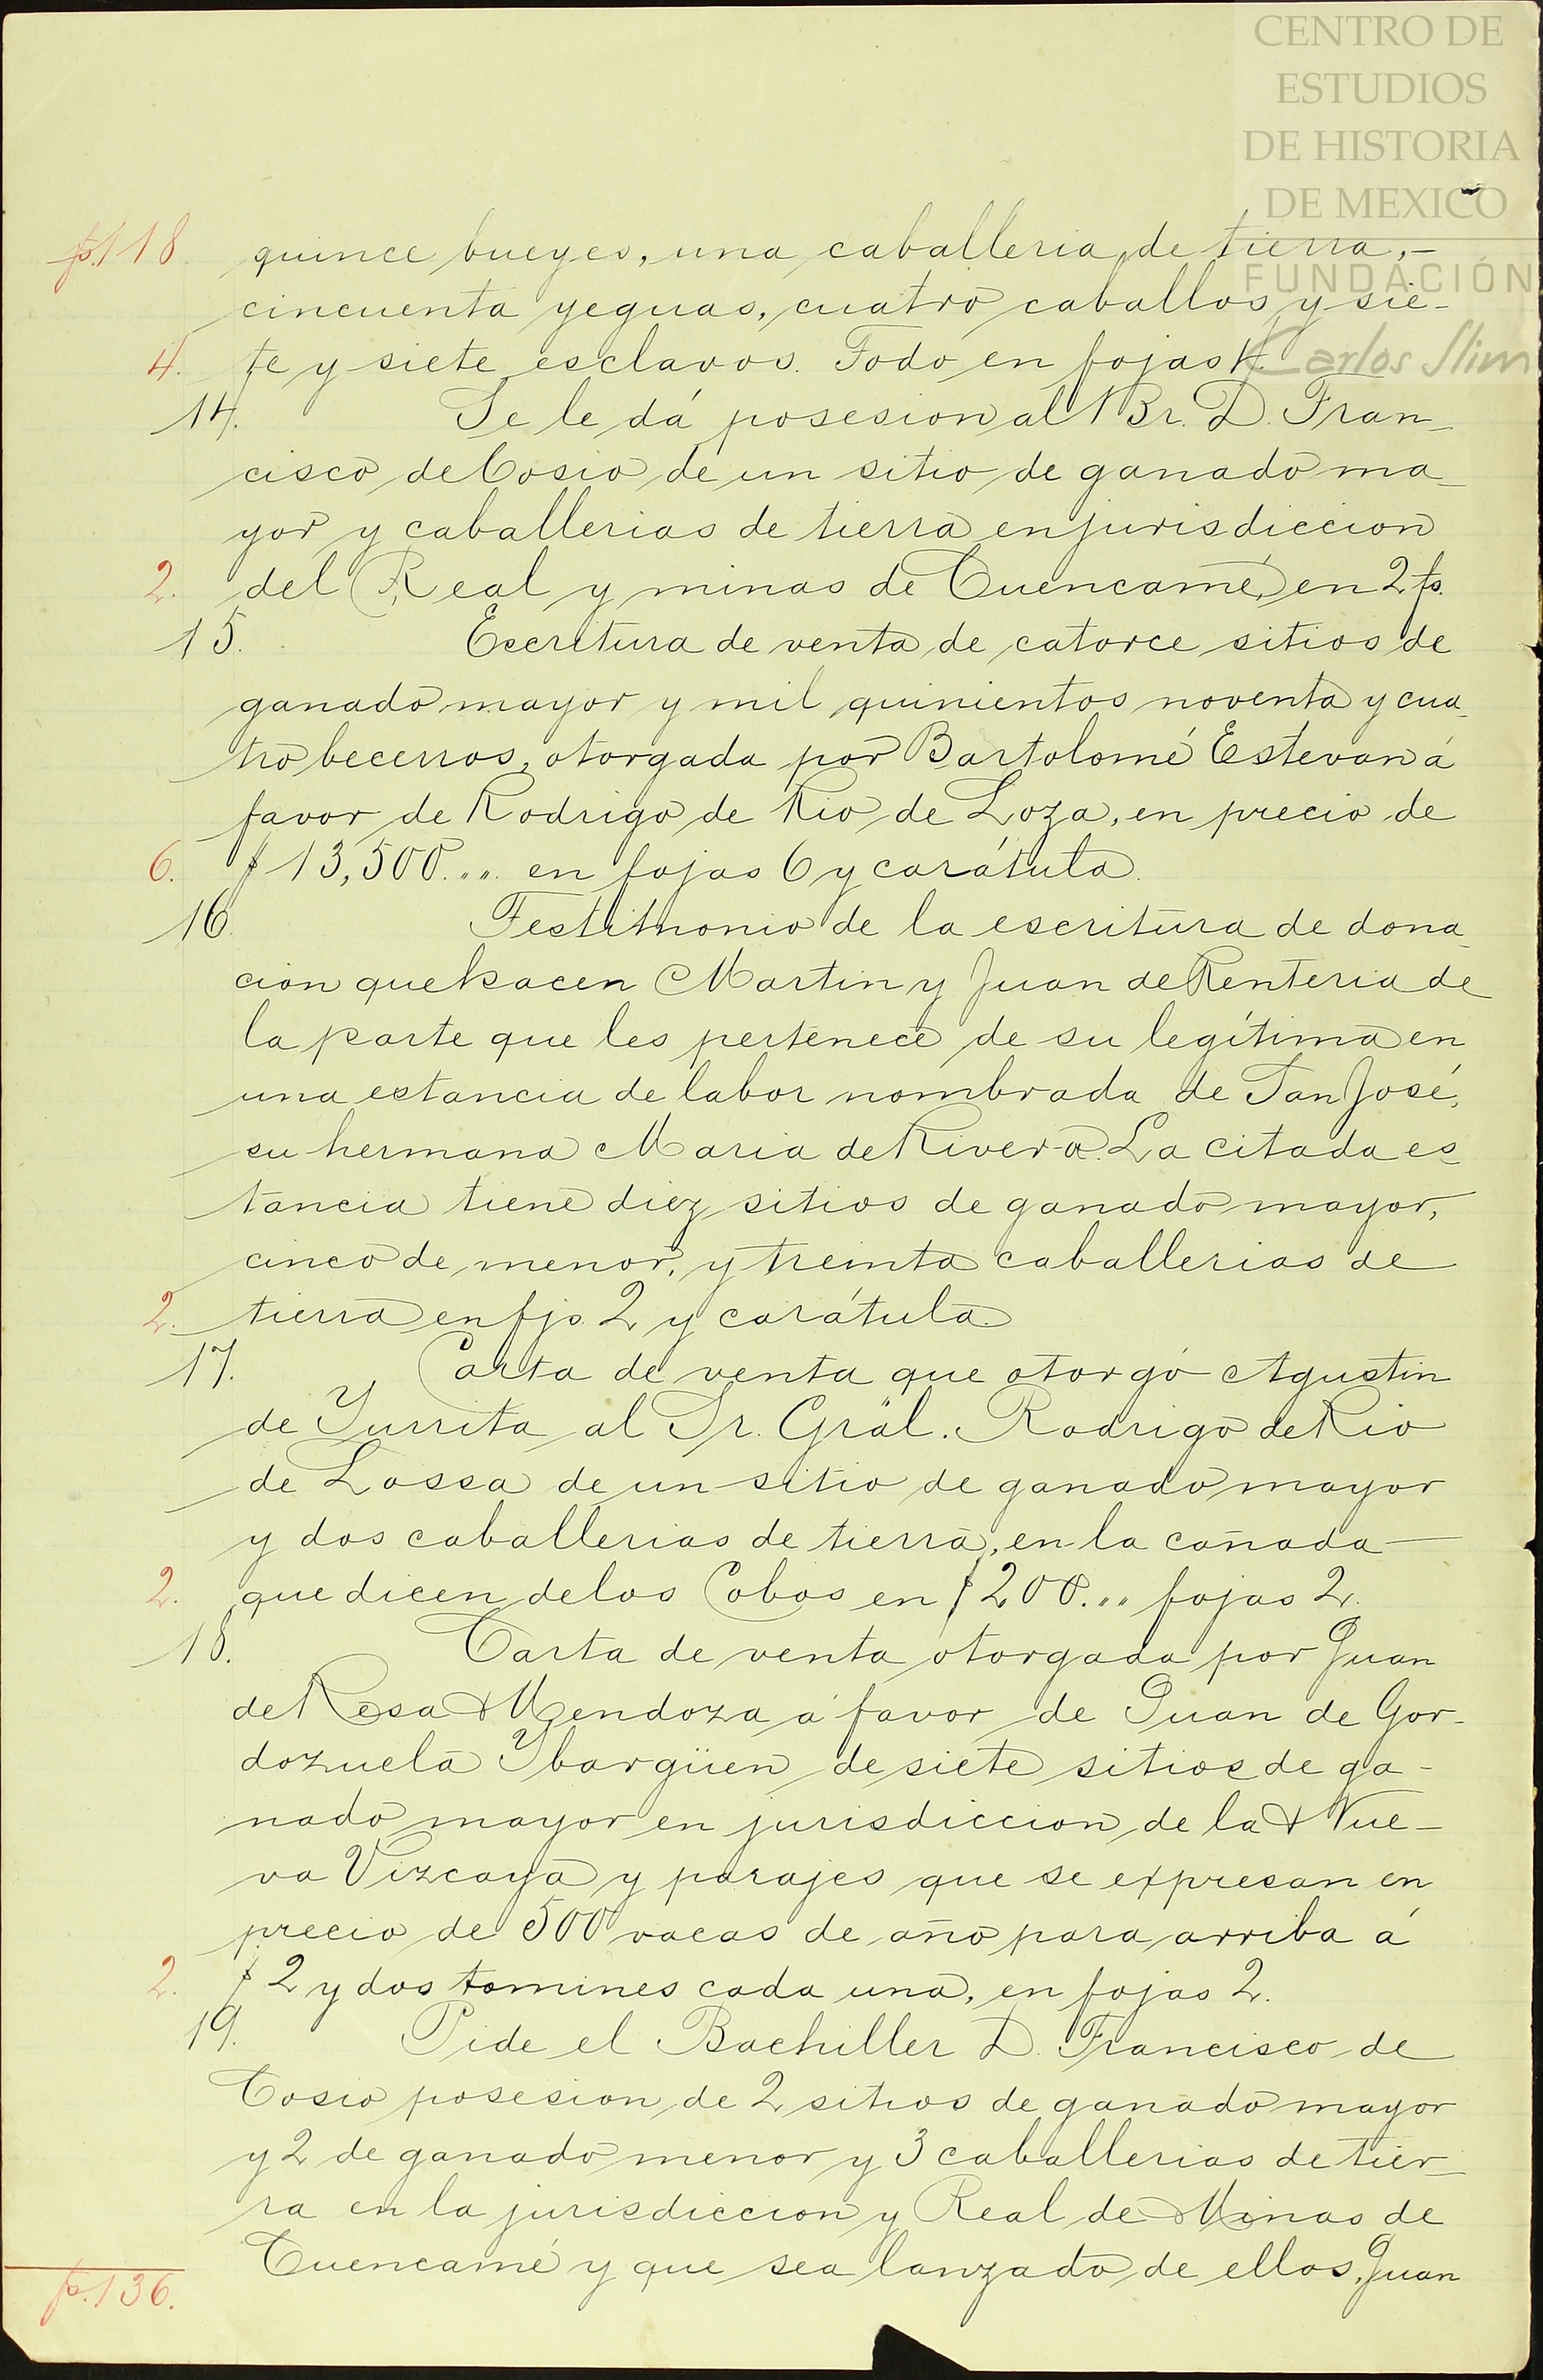 CENTRO DE
ESTUDIOS
DE HISTORIA
DE MEXICO
FUNDACIÓN
Carlos Slim
p. 118 quince bueyes, una caballeria de tierra, -
cincuenta yeguas, cuatro caballos y sie-
4. te y siete esclavos. Todo en fojas 4.
14. Se le dá posesion al Br. D. Fran-
cisco de Cosio de un sitio de ganado ma-
yor y caballerias de tierra en jurisdiccion
2. del Real y minas de Cuencamé, en 2 fs.
15. Escritura de venta de catorce sitios de
ganado mayor y mil quinientos noventa y cua-
tro becerros, otorgada por Bartolomé Estevan á
favor de Rodrigo de Rio de Loza, en precio de
6. $ 13,500... en fojas 6 y carátula.
16. Testimonio de la escritura de dona-
cion que hacen Martin y Juan de Renteria de
la parte que les pertenece de su legítima en
una estancia de labor nombrada de San José,
su hermana Maria de Rivera. La citada es-
tancia tiene diez sitios de ganado mayor,
cinco de menor, y treinta caballerias de
2. tierra en fjs. 2 y carátula.
17. Carta de venta que otorgó Agustin
de Yurrita al Sr. Gräl. Rodrigo de Rio
de Lossa de un sitio de ganado mayor
y dos caballerias de tierra, en la cañada
2. que dicen de los Cobos en $ 200... fojas 2.
18. Carta de venta otorgada por Juan
de Resa Mendoza á favor de Juan de Gor-
dozuela Ybargüen de siete sitios de ga-
nado mayor en jurisdiccion de la Nue-
va Vizcaya y parajes que se expresan en
precio de 500 vacas de año para arriba á
2. $ 2 y dos tomines cada una, en fojas 2.
19. Pide el Bachiller D. Francisco de
Cosio posesion de 2 sitios de ganado mayor
y 2 de ganado menor y 3 caballerias de tier-
ra en la jurisdiccion y Real de Minas de
Cuencamé y que sea lanzado de ellos, Juan
p. 136.